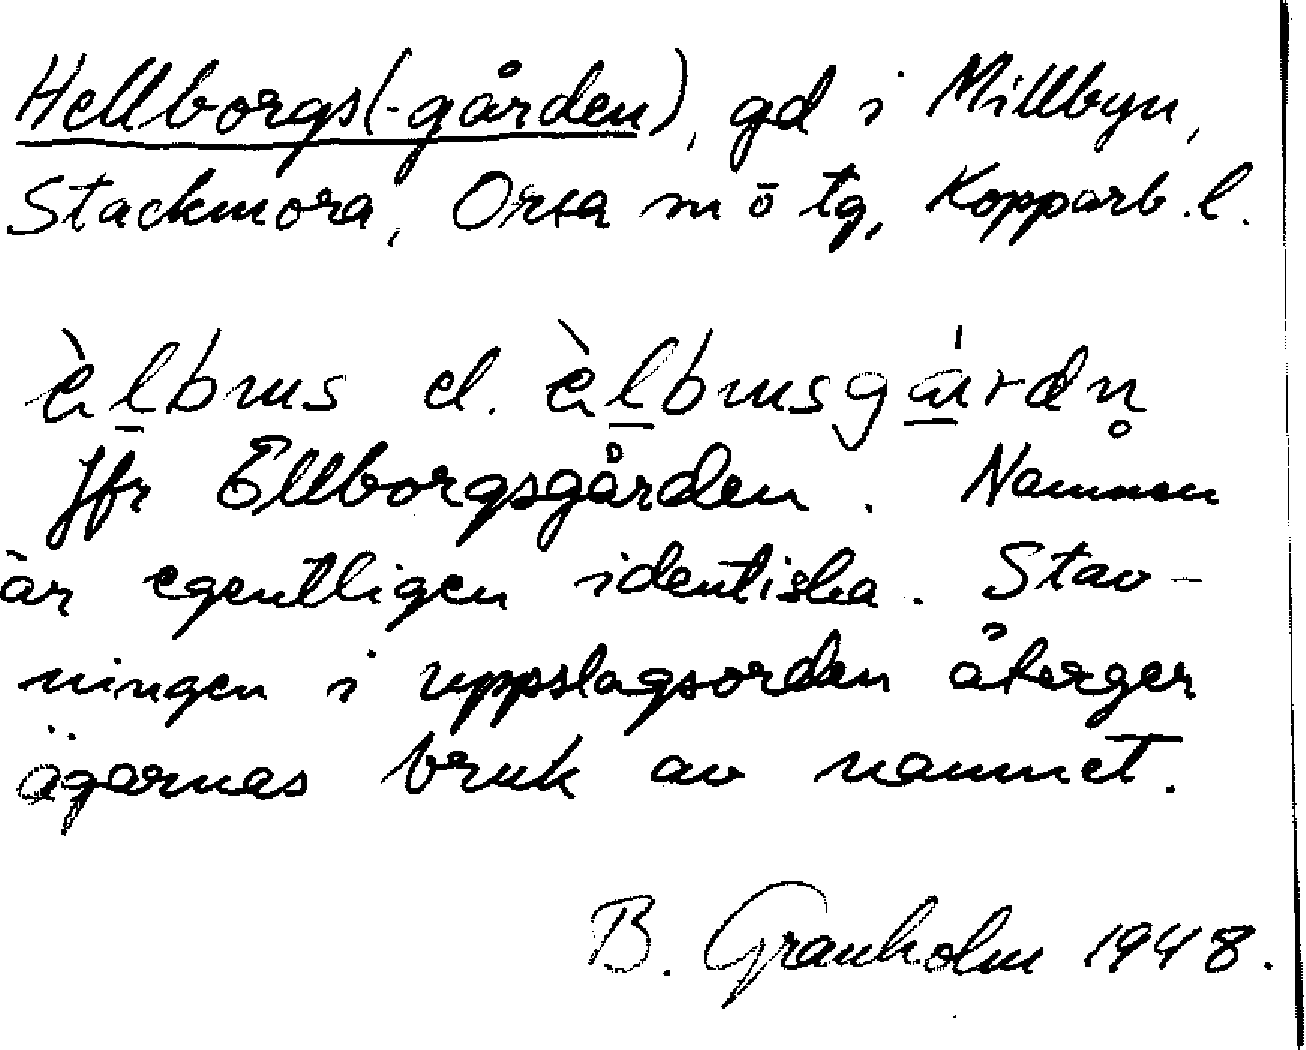 Hellborgs(-gården), gd i Millbyn,
Stackmora, Orsa sn o tg, Kopparb. l.
èl̠bus el. èl̠busgá̠rdn̥
Jfr Ellborgsgården. Namnen
är egentligen identiska. Stav-
ningen i uppslagsorden återger
ägarnas bruk av namnet.
B. Granholm 1948.